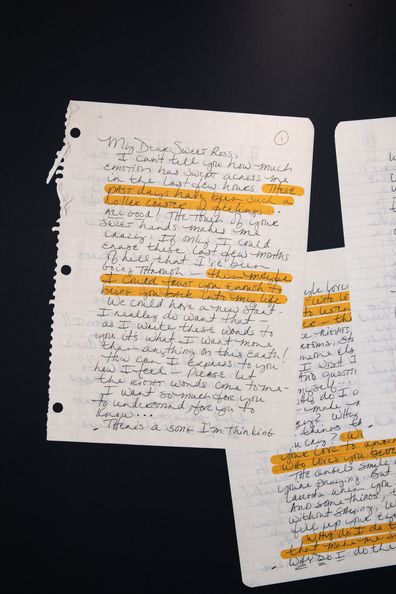 1
My Dear Sweet Ross,
I can't tell you how much
emotion has swept across me
in the last few hours. These
past days have been such a
roller coaster of feelings.
All good! The touch of your
sweet hands makes me
crazy. If only I could
erase these last few months
of hell that I've been
going through - then maybe
I could trust you enough to
have you back into my life.
We could have a new start
I really do want that -
as I write these words to
you it's what I want more
than anything on this earth!
How can I express to you
how I feel - please let
the right words come to me -
I want so much for you
to understand, for you to
know...
There's a song I'm thinking
you love
to listen
rights,
I wish I
and
myself...
Why do I
- make
Why
things
u cry?
your love to
who loves you
The angels smile
you're praying. But
when you
And some things,
without saying,
fill up your
Why do I do
that make me
WHY DO I do the